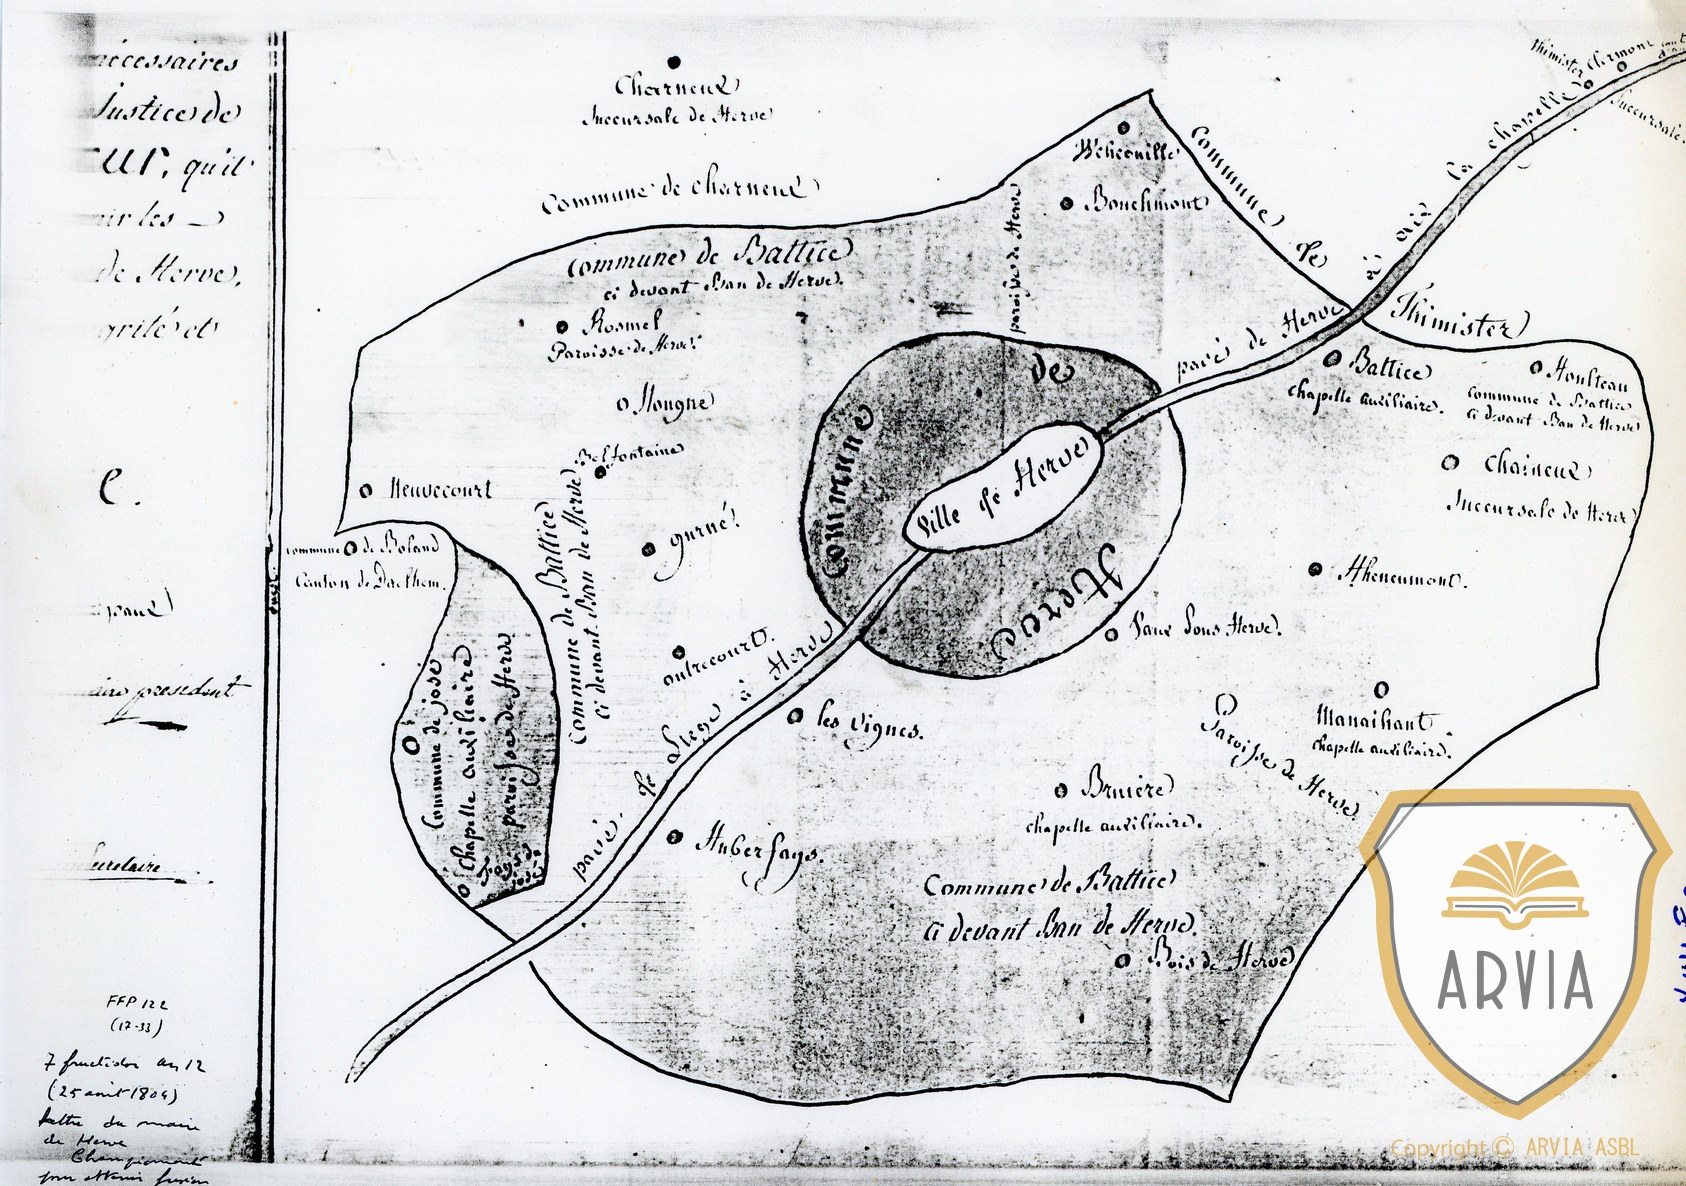 nécessaires
Justice de
qu'il
les
de Herve.
et
président
FFP 122
(17-33)
7 fructidor an 12
(25 août 1804)
lettre du maire
de Herve
Charneux
Succursale de Herve
Commune de Charneux
Commune de Battice
ci devant Ban de Herve.
Rosmel
Paroisse de Herve
Hougne
Belfontaine
Heuvecourt
gurné
commune de Boland
Canton de Dalhem.
Commune de Battice
ci devant Ban de Herve
outrecourt.
Commune de jose
Chapelle auxiliaire
paroisse de Herve
pavé de Liege à Herve
les vignes.
Huberfays.
Bouchmont
paroisse de Herve
Commune de Thimister
pavé de Herve à aix la chapelle
Thimister
Clermont
Succursale
Commune de Herve
Ville de Herve
Battice
chapelle auxiliaire.
Houlteau
commune de Battice
ci devant Ban de Herve
Chaineux
Succursale de Herve
Vaux sous Herve.
Manaihant
chapelle auxiliaire.
Paroisse de Herve
Bruiere
chapelle auxiliaire.
Commune de Battice
ci devant Ban de Herve.
Bois de Herve
ARVIA
Copyright © ARVIA ASBL